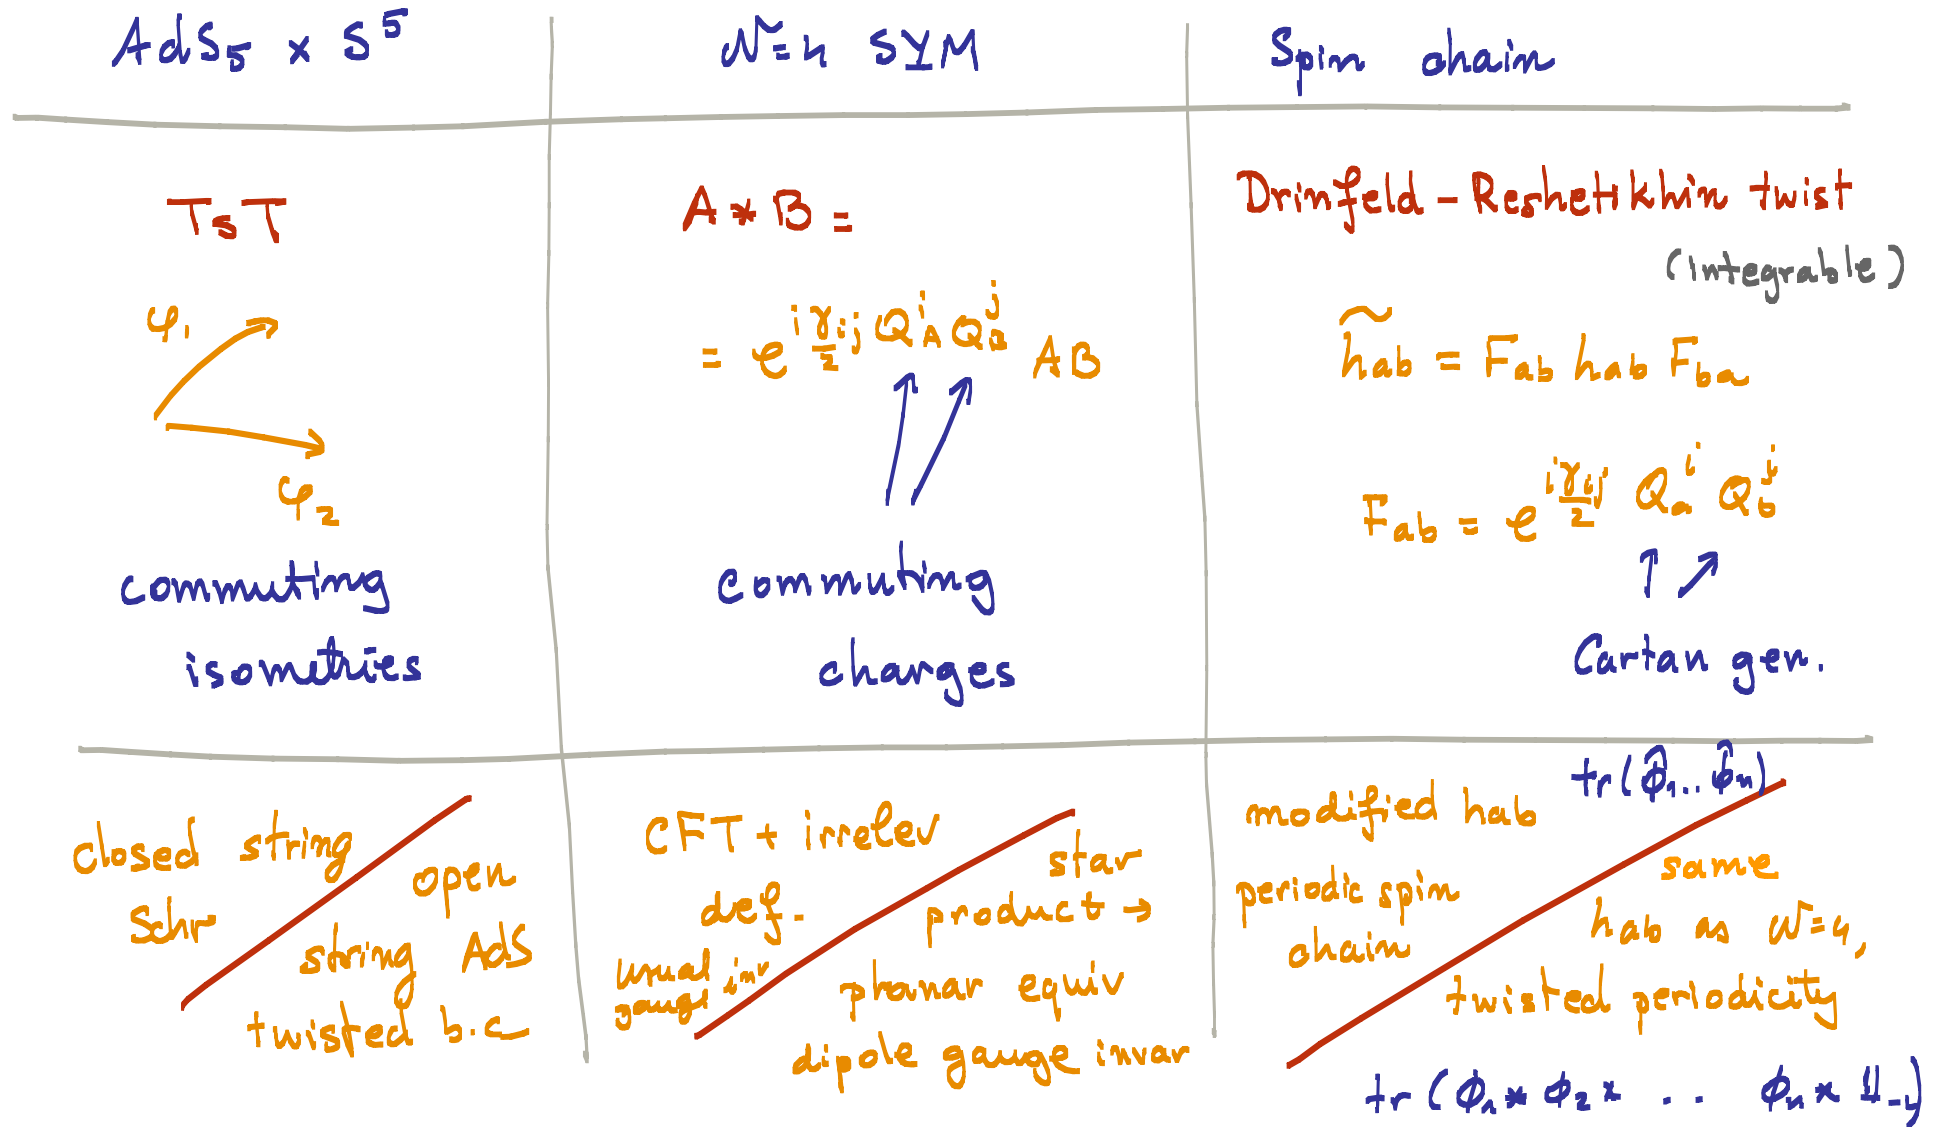 AdS₅ × S⁵
TsT
φ₁
φ₂
commuting
isometries
closed string
Schr
open
string AdS
twisted b.c
N=4 SYM
A * B =
= e^{i γij/2 Q^i_A Q^j_B} AB
commuting
charges
CFT + irrelev
def.
usual
gauge inv
star
product →
planar equiv
dipole gauge invar
Spin chain
Drinfeld - Reshetikhin twist
(integrable)
h̃ab = Fab hab Fba
Fab = e^{iγij/2 Q^i_a Q^j_b}
Cartan gen.
modified hab
periodic spin
chain
tr(φ̂₁..φ̂n)
same
hab as N=4,
twisted periodicity
tr (φ₁ * φ₂ * .. φn * 𝟙_-L)